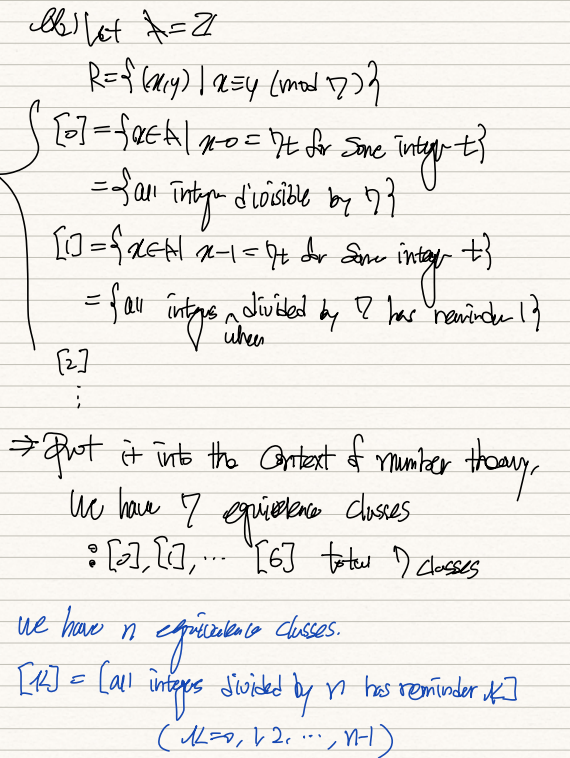 let A = ℤ
R = {(x,y) | x ≡ y (mod 7)}
[0] = {x∈A | x-0 = 7t for some integer t}
= {all integer divisible by 7}
[1] = {x∈A | x-1 = 7t for some integer t}
= {all integers divided by 7 has reminder 1}
when
[2]
⋮
⇒ Put it into the context of number theory,
We have 7 equivalence classes
: [0], [1], ... [6] total 7 classes
We have n equivalence classes.
[k] = [all integers divided by n has reminder k]
(k=0, 1 2, ..., n-1)